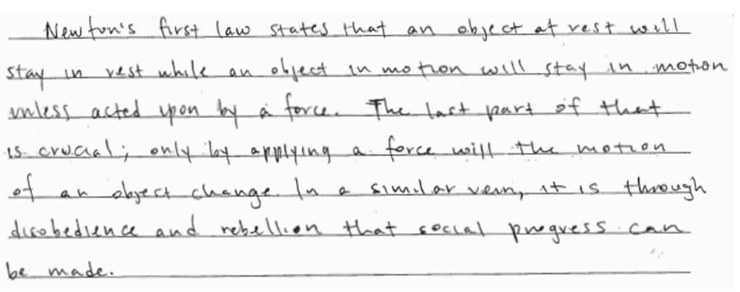 Newton's first law states that an object at rest will
stay in rest while an object in motion will stay in motion
unless acted upon by a force. The last part of that
is crucial; only by applying a force will the motion
of an object change. In a similar vein, it is through
disobedience and rebellion that social progress can
be made.